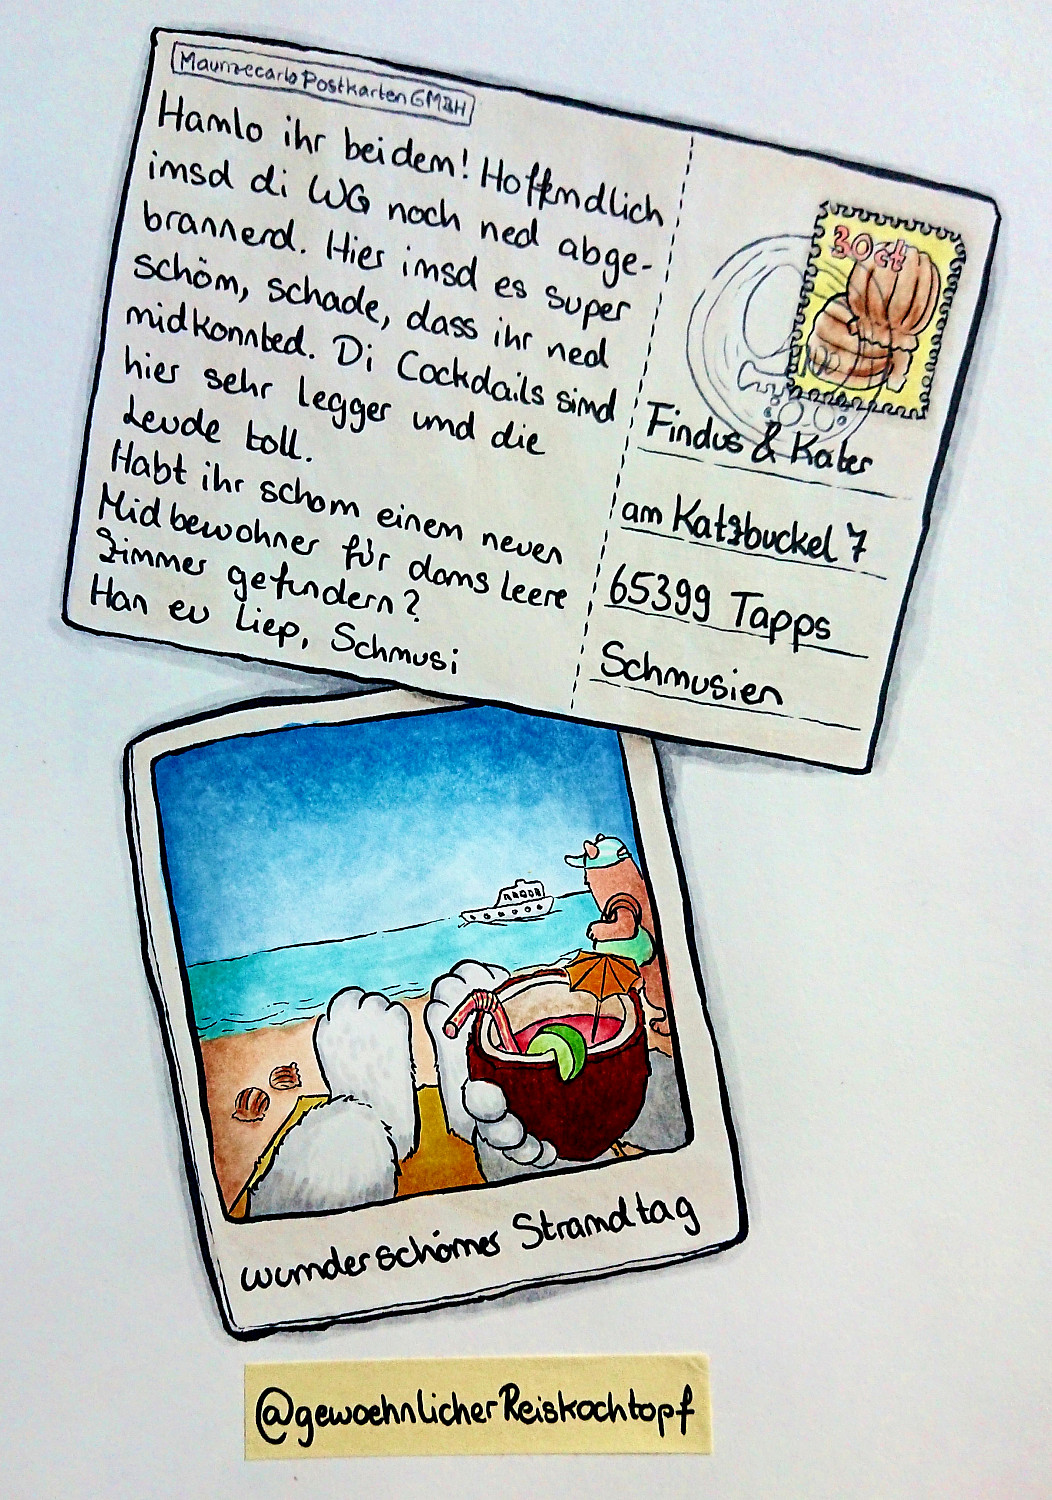 Maunzecarlo Postkarten GMBH
Hamlo ihr beidem! Hoffemdlich
imsd di WG noch ned abge-
brannerd. Hier imsd es super
schöm, schade, dass ihr ned
midkonnted. Di Cockdails simd
hier sehr legger umd die
Leude toll.
Habt ihr schom einem neuen
Midbewohner für dams leere
Zimmer gefundern?
Han eu liep, Schmusi
30ct
Findus & Kater
am Katzbuckel 7
65399 Tapps
Schmusien
wumderschömes Stramdtag
@gewoehnlicherReiskochtopf